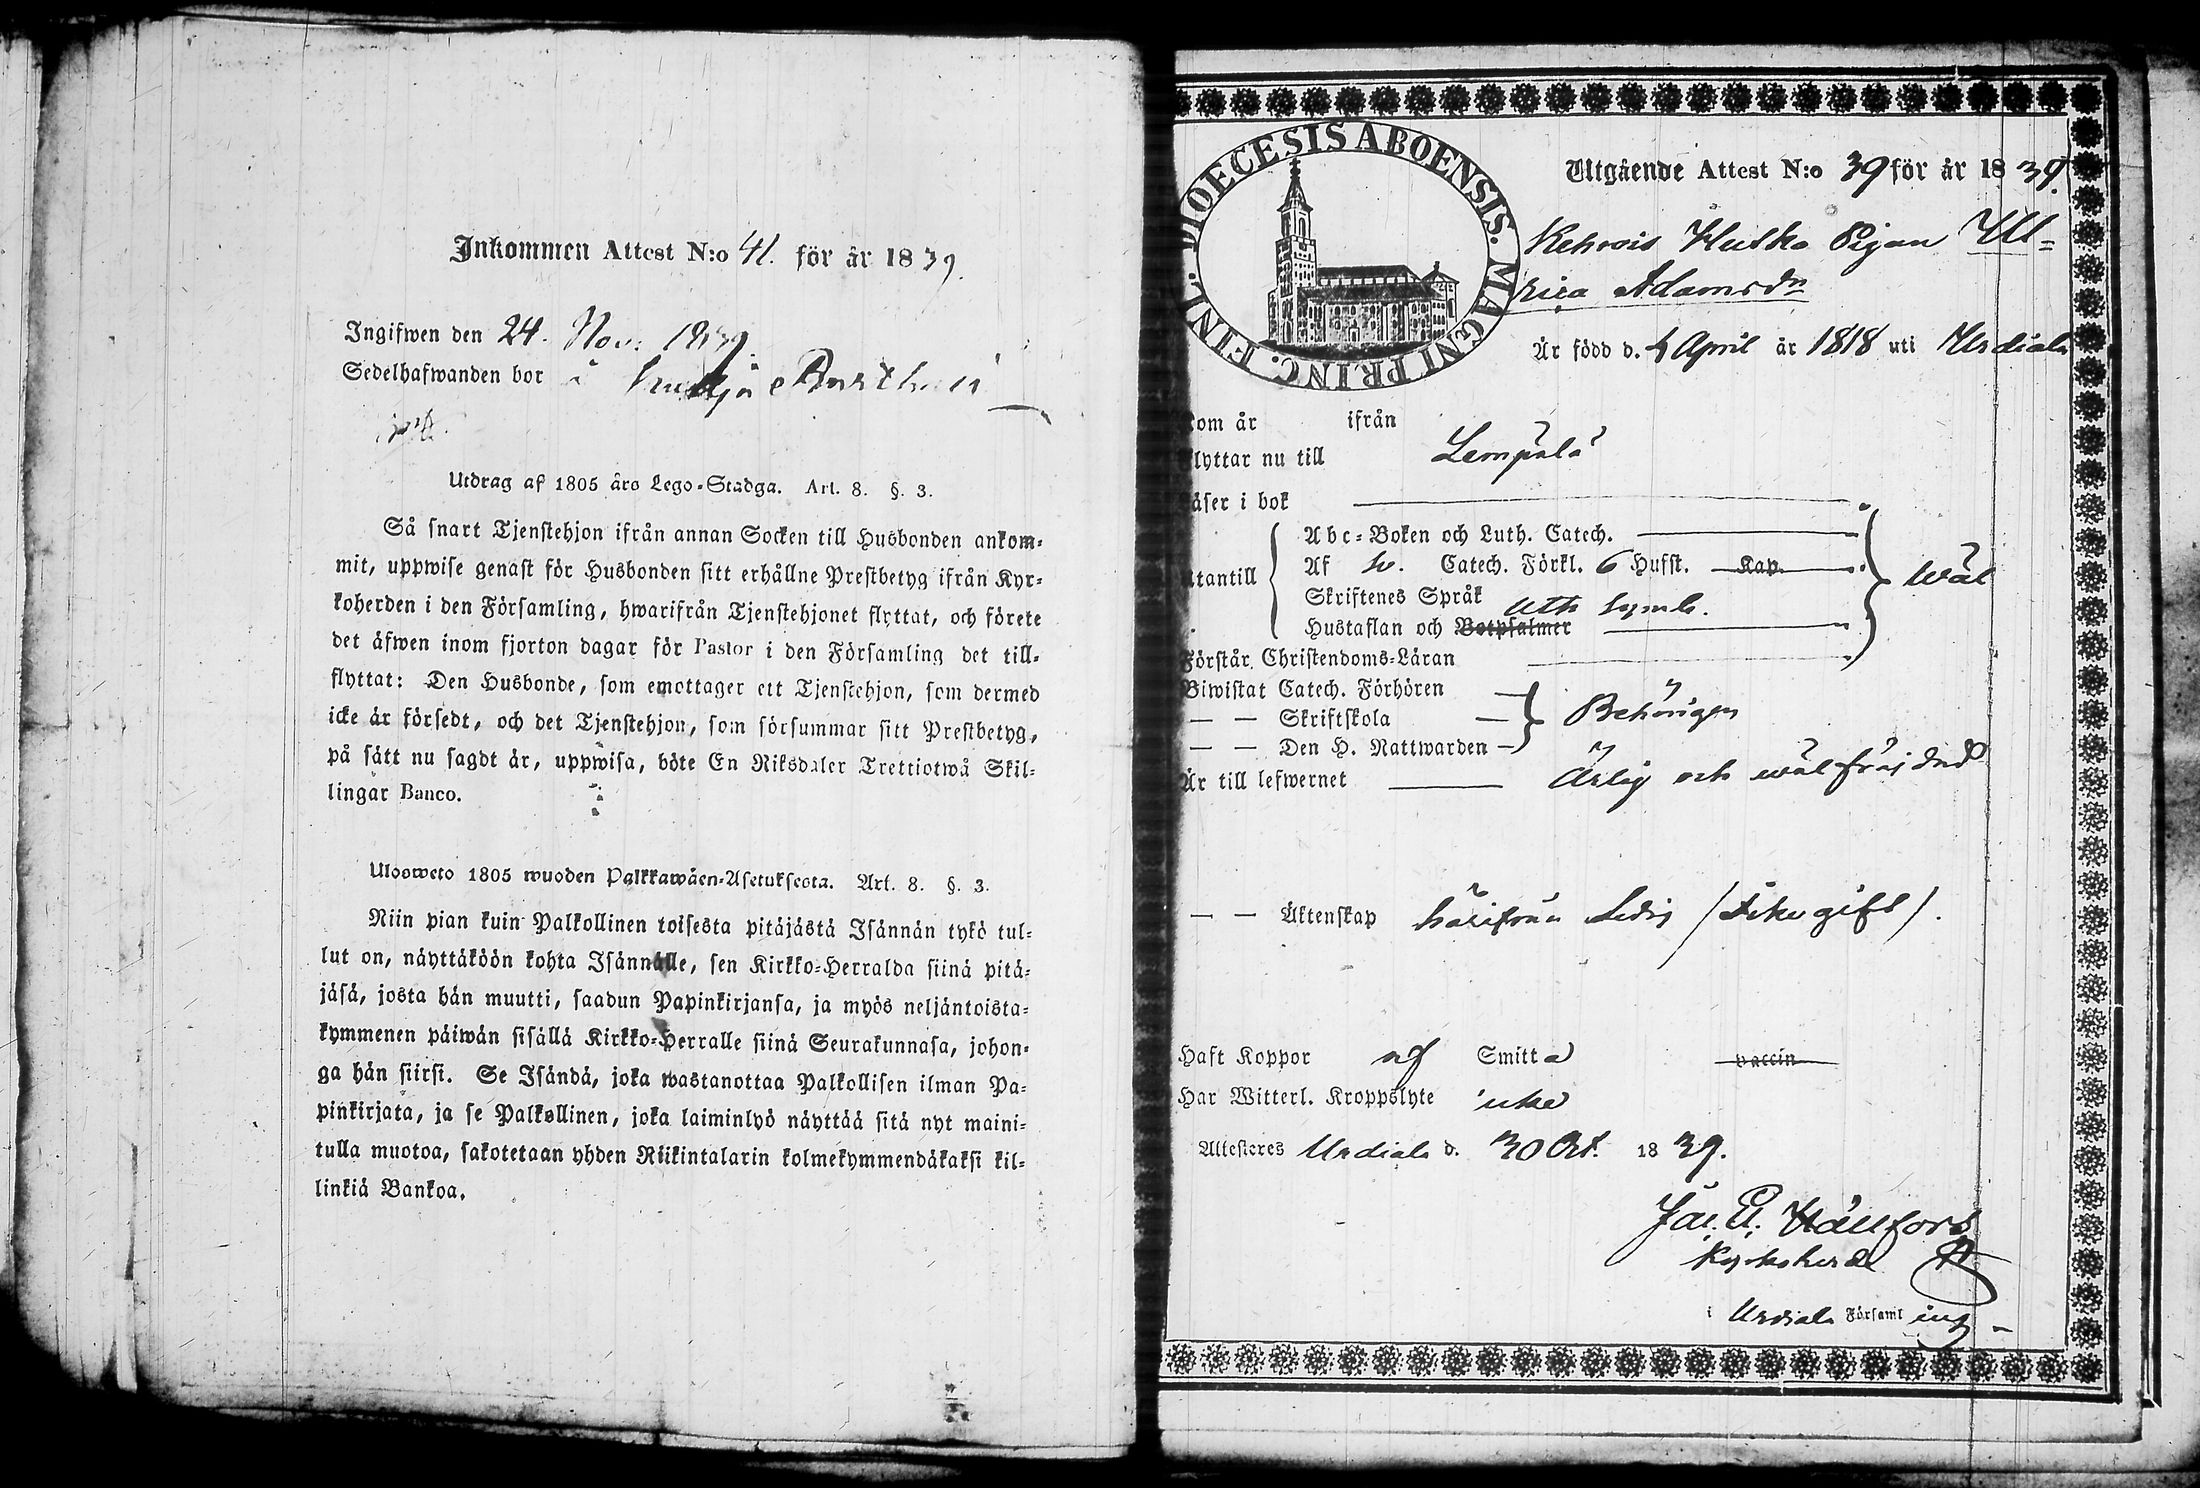 Inkommen Attest N:o 41. för år 1839.
Ingifwen den 24. Nov. 1839.
Sedelhafwanden bor å
Utdrag af 1805 års Lego-Stadga. Art. 8. §. 3.
Så snart Tjenstehjon ifrån annan Socken till Husbonden ankom-
mit, uppwise genast för Husbonden sitt erhållne Prestbetyg ifrån Kyr-
koherden i den Församling, hwarifrån Tjenstehjonet flyttat, och förete
det äfwen inom fjorton dagar för Pastor i den Församling det till-
flyttat: Den Husbonde, som emottager ett Tjenstehjon, som dermed
icke är försedt, och det Tjenstehjon, som försummar sitt Prestbetyg,
på sätt nu sagdt är, uppwisa, böte En Riksdaler Trettiotwå Skil-
lingar Banco.
Ulosweto 1805 wuoden Palkkawäen-Asetuksesta. Art. 8. §. 3.
Niin pian kuin Palkollinen toisesta pitäjästä Isännän tykö tul-
lut on, näyttäköön kohta Isännälle, sen Kirkko-Herralda siinä pitä-
jäsä, josta hän muutti, saadun Papinkirjansa, ja myös neljäntoista-
kymmenen päiwän sisällä Kirkko-Herralle siinä Seurakunnasa, johon-
ga hän siirsi. Se Isändä, joka wastanottaa Palkollisen ilman Pa-
pinkirjata, ja se Palkollinen, joka laiminlyö näyttää sitä nyt maini-
tulla muotoa, sakotetaan yhden Riikintalarin kolmekymmendäkaksi kil-
linkiä Bankoa.
DIOECESIS ABOENSIS. MAGNI PRINC. FINL.
Utgående Attest N:o 39 för år 1839.
Kehrois Hutko Pigan Ul=
rica Adamsdr
Är född d. 4 April år 1818 uti Urdiala
kom år ifrån
flyttar nu till Lempälä
Läser i bok
Utantill
Abc-Boken och Luth. Catech.
Af Sv. Catech. Förkl. 6 Hufst. Kap.
Skriftenes Språk
Ath Symb.
Hustaflan och Botpsalmer
wäl
Förstår Christendoms-Läran
Biwistat Catech. Förhören
— — Skriftskola
— — Den H. Nattwarden
Behörigen
Är till lefwernet Ärlig och wälfräjdad
— — Äktenskap härifrån ledig /icke gift/.
Haft Koppor af Smitta vaccin
Har Witterl. Kroppslyte icke
Attesteres Urdiala d. 30 Oct. 1839.
Jac. Ul. Hällfors
Kyrkoherde
i Urdiala Församling